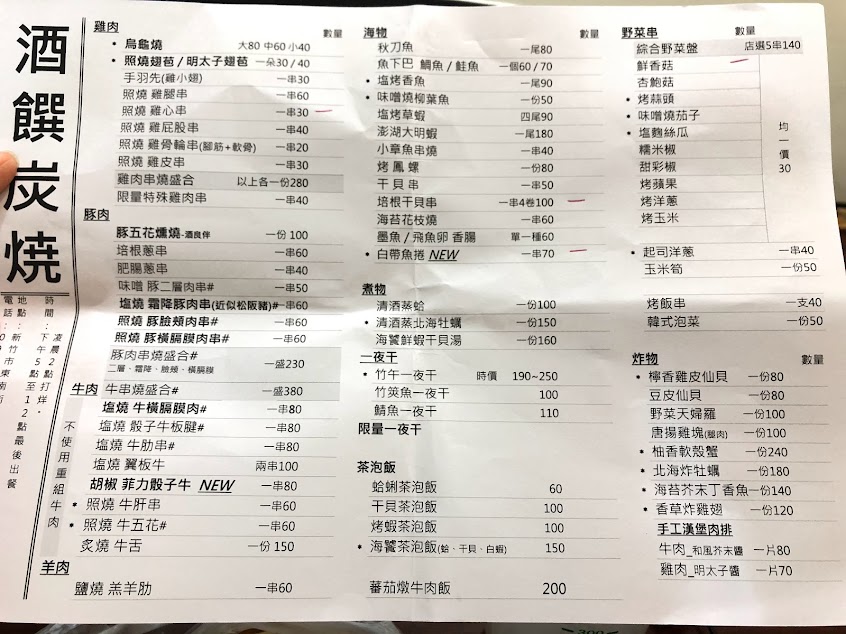 酒饌炭燒
時間:下午5點至12點最後出餐
凌晨2點打烊。
地點:新竹市東南街
電話:0
雞肉 數量
• 烏龜燒 大80 中60 小40
• 照燒翅苞 / 明太子翅苞 一朵30 / 40
手羽先(雞小翅) 一串30
照燒 雞腿串 一串60
照燒 雞心串 一串30
照燒 雞屁股串 一串40
照燒 雞骨輪串(腳筋+軟骨) 一串20
照燒 雞皮串 一串30
雞肉串燒盛合 以上各一份280
限量特殊雞肉串 一串40
豚肉
豚五花燻燒-酒良伴 一份 100
培根蔥串 一串60
肥腸蔥串 一串40
味噌 豚二層肉串# 一串50
塩燒 霜降豚肉串(近似松阪豬)# 一串60
照燒 豚臉頰肉串# 一串60
照燒 豚橫膈膜肉串# 一串60
豚肉串燒盛合# 一盛230
二層、霜降、臉頰、橫膈膜
牛肉 牛串燒盛合# 一盛380
不使用重組牛肉
塩燒 牛橫膈膜肉# 一串80
塩燒 骰子牛板腱# 一串80
塩燒 牛肋串# 一串80
塩燒 翼板牛 兩串100
胡椒 菲力骰子牛 NEW 一串80
• 照燒 牛肝串 一串60
• 照燒 牛五花# 一串60
炙燒 牛舌 一份 150
羊肉
鹽燒 羔羊肋 一串60
海物 數量
秋刀魚 一尾80
魚下巴 鯛魚 / 鮭魚 一個60 / 70
• 塩烤香魚 一尾90
• 味噌燒柳葉魚 一份50
塩烤草蝦 四尾90
澎湖大明蝦 一尾180
小章魚串燒 一串40
烤 鳳 螺 一份80
干 貝 串 一串50
培根干貝串 一串4卷100
海苔花枝燒 一串60
墨魚 / 飛魚卵 香腸 單一種60
• 白帶魚捲 NEW 一串70
煮物
清酒蒸蛤 一份100
• 清酒蒸北海牡蠣 一份150
海饕鮮蝦干貝湯 一份160
一夜干
• 竹午一夜干 時價 190~250
竹筴魚一夜干 100
鯖魚一夜干 110
限量一夜干
茶泡飯
蛤蜊茶泡飯 60
干貝茶泡飯 100
烤蝦茶泡飯 100
• 海饕茶泡飯(蛤、干貝、白蝦) 150
蕃茄燉牛肉飯 200
野菜串 數量
綜合野菜盤 店選5串140
鮮香菇
杏鮑菇
• 烤蒜頭
• 味噌燒茄子
• 塩麴絲瓜
糯米椒
甜彩椒
烤蘋果
烤洋蔥
烤玉米
均一價30
• 起司洋蔥 一串40
玉米筍 一份50
烤飯串 一支40
韓式泡菜 一份50
炸物 數量
• 檸香雞皮仙貝 一份80
豆皮仙貝 一份80
野菜天婦羅 一份100
唐揚雞塊(腿肉) 一份100
• 柚香軟殼蟹 一份240
• 北海炸牡蠣 一份180
• 海苔芥末丁香魚 一份140
• 香草炸雞翅 一份120
手工漢堡肉排
牛肉_和風芥末醬 一片80
雞肉_明太子醬 一片70